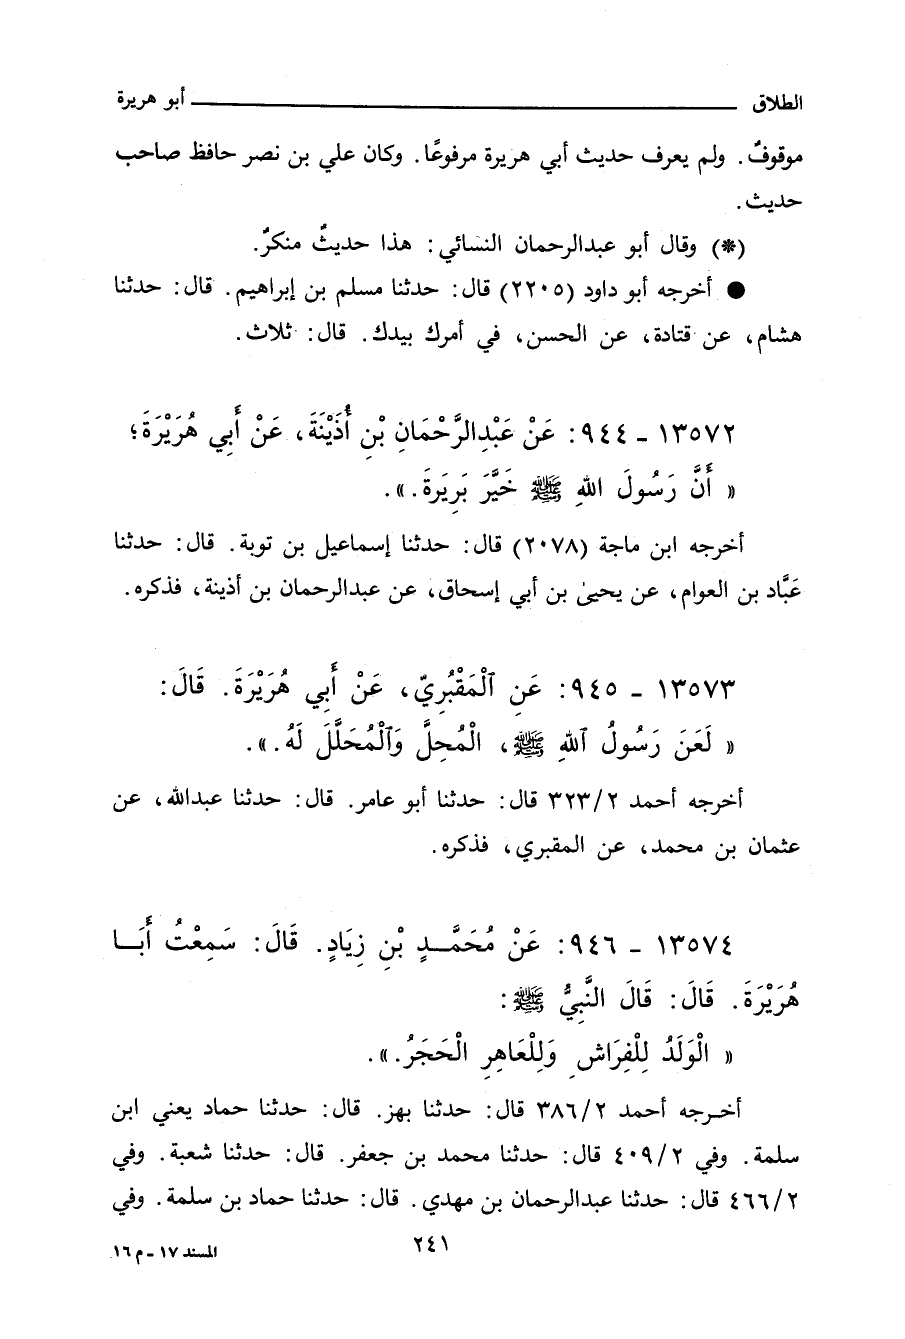 الطلاق ـــــــــــــــــــــــــــــــــــــــ أبو هريرة
موقوفٌ. ولم يعرف حديث أبي هريرة مرفوعًا. وكان علي بن نصر حافظ صاحب
حديث.
(*) وقال أبو عبدالرحمان النسائي: هذا حديثٌ منكرٌ.
● أخرجه أبو داود (٢٢٠٥) قال: حدثنا مسلم بن إبراهيم. قال: حدثنا
هشام، عن قتادة، عن الحسن، في أمرك بيدك. قال: ثلاث.
١٣٥٧٢ ـ ٩٤٤: عَنْ عَبْدِالرَّحْمَانِ بْنِ أُذَيْنَةَ، عَنْ أَبِي هُرَيْرَةَ؛
« أَنَّ رَسُولَ اللهِ ﷺ خَيَّرَ بَرِيَرةَ.».
أخرجه ابن ماجة (٢٠٧٨) قال: حدثنا إسماعيل بن توبة. قال: حدثنا
عَبَّاد بن العوام، عن يحيىٰ بن أبي إسحاق، عن عبدالرحمان بن أذينة، فذكره.
١٣٥٧٣ ـ ٩٤٥: عَنِ ٱلْمَقْبُرِيِّ، عَنْ أَبِي هُرَيْرَةَ. قَالَ:
« لَعَنَ رَسُولُ ٱللهِ ﷺ، الْمُحِلَّ وَٱلْمُحَلَّلَ لَهُ.».
أخرجه أحمد ٣٢٣/٢ قال: حدثنا أبو عامر. قال: حدثنا عبدالله، عن
عثمان بن محمد، عن المقبري، فذكره.
١٣٥٧٤ ـ ٩٤٦: عَنْ مُحَمَّـدٍ بْنِ زِيَادٍ. قَالَ: سَمِعْتُ أَبَـا
هُرَيْرَةَ. قَالَ: قَالَ النَّبِيُّ ﷺ:
« الْوَلَدُ لِلْفِرَاشِ وَلِلْعَاهِرِ الْحَجَرُ.».
أخـرجه أحمد ٣٨٦/٢ قال: حدثنا بهز. قال: حدثنا حماد يعني ابن
سلمة. وفي ٤٠٩/٢ قال: حدثنا محمد بن جعفر. قال: حدثنا شعبة. وفي
٤٦٦/٢ قال: حدثنا عبدالرحمان بن مهدي. قال: حدثنا حماد بن سلمة. وفي
٢٤١
المسند ١٧ ـ م ١٦